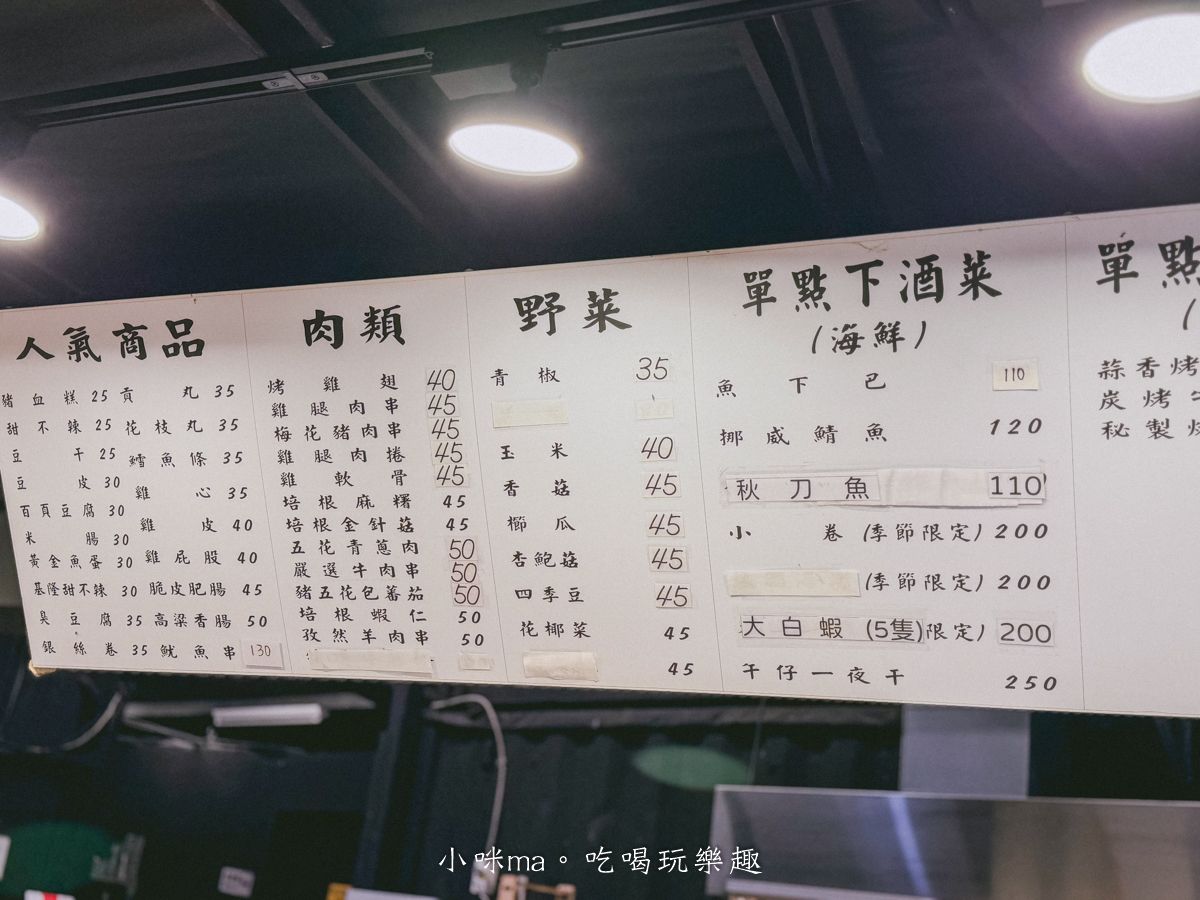 人氣商品
豬血糕 25 貢丸 35
甜不辣 25 花枝丸 35
豆干 25 鱈魚條 35
豆皮 30 雞心 35
百頁豆腐 30
米腸 30 雞皮 40
黃金魚蛋 30 雞屁股 40
基隆甜不辣 30 脆皮肥腸 45
臭豆腐 35 高粱香腸 50
銀絲卷 35 魷魚串 130
肉類
烤雞翅 40
雞腿肉串 45
梅花豬肉串 45
雞腿肉捲 45
雞軟骨 45
培根麻糬 45
培根金針菇 45
五花青蔥肉 50
嚴選牛肉串 50
豬五花包蕃茄 50
培根蝦仁 50
孜然羊肉串 50
野菜
青椒 35
玉米 40
香菇 45
櫛瓜 45
杏鮑菇 45
四季豆 45
花椰菜 45
45
單點下酒菜
(海鮮)
魚下巴 110
挪威鯖魚 120
秋刀魚 110
小卷 (季節限定) 200
(季節限定) 200
大白蝦 (5隻)限定) 200
午仔一夜干 250
單點
(
蒜香烤
炭烤
秘製
小咪ma。吃喝玩樂趣